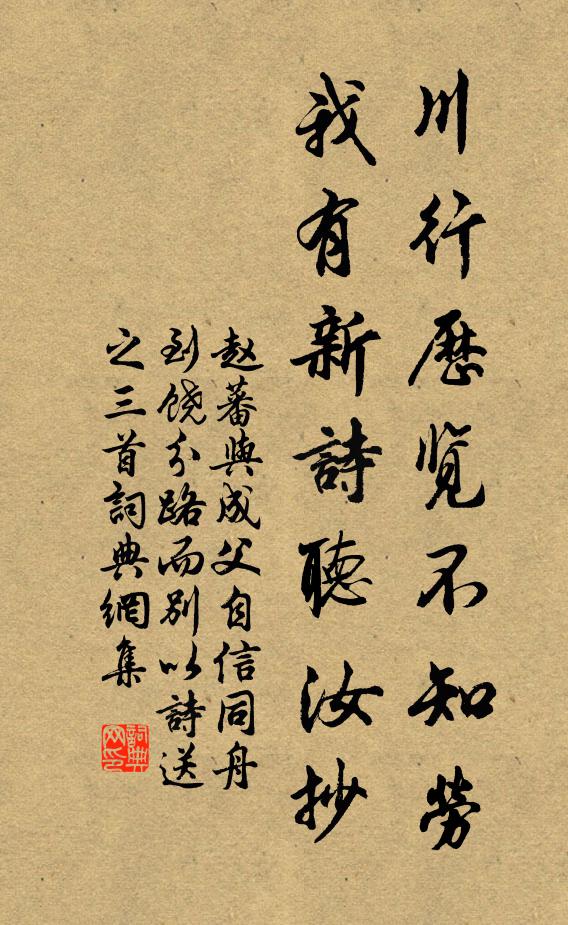 川行歷覽不知勞
我有新詩聽汝抄
赵蕃與成父自信同舟
到饶分路而别以詩送
之三首詞典網集
詞典网印